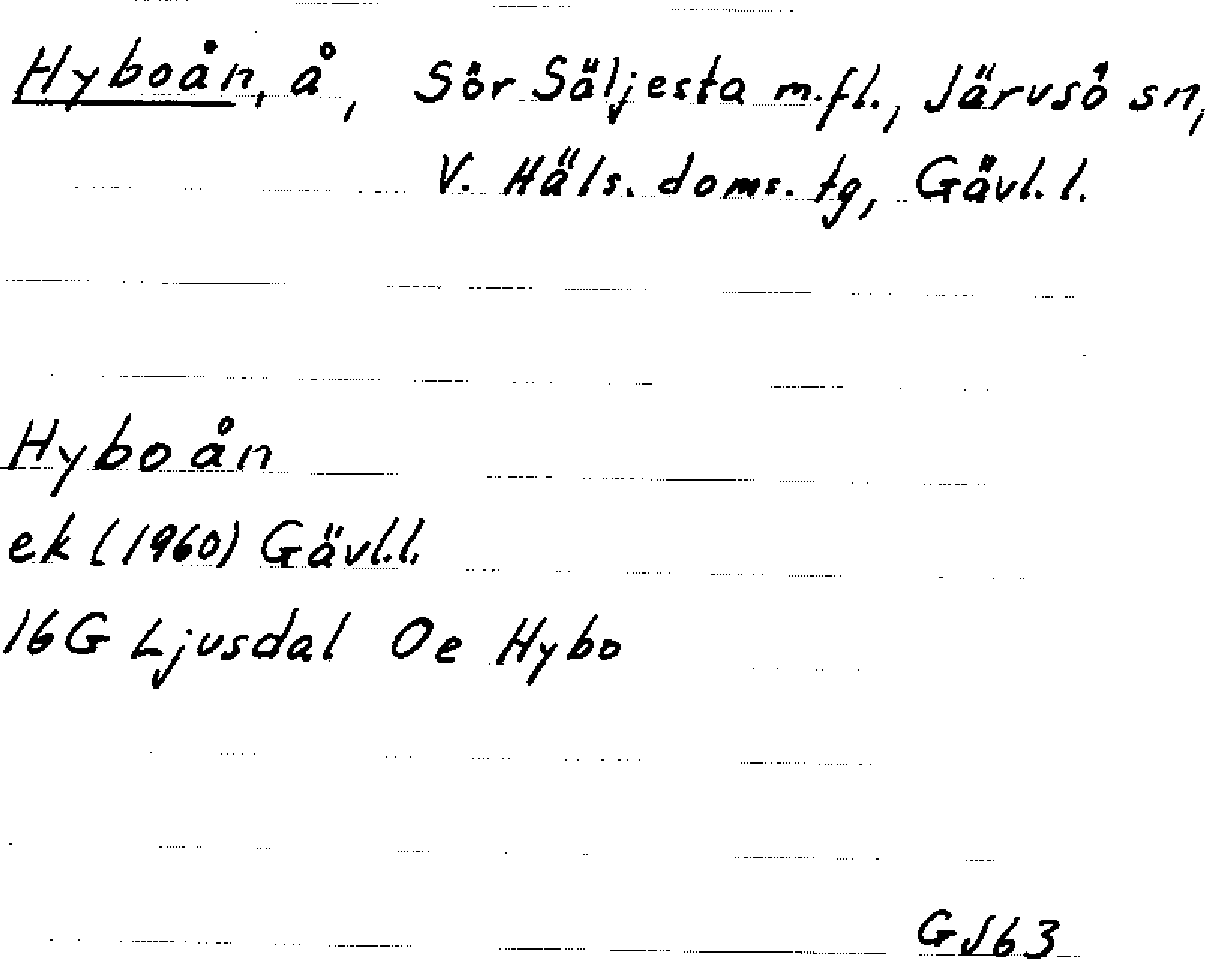 Hyboån, å, Sör Säljesta m.fl., Järvsö sn,
V. Häls. doms. tg, Gävl. l.
Hyboån
ek (1960) Gävl.l.
16G Ljusdal Oe Hybo
GJ63